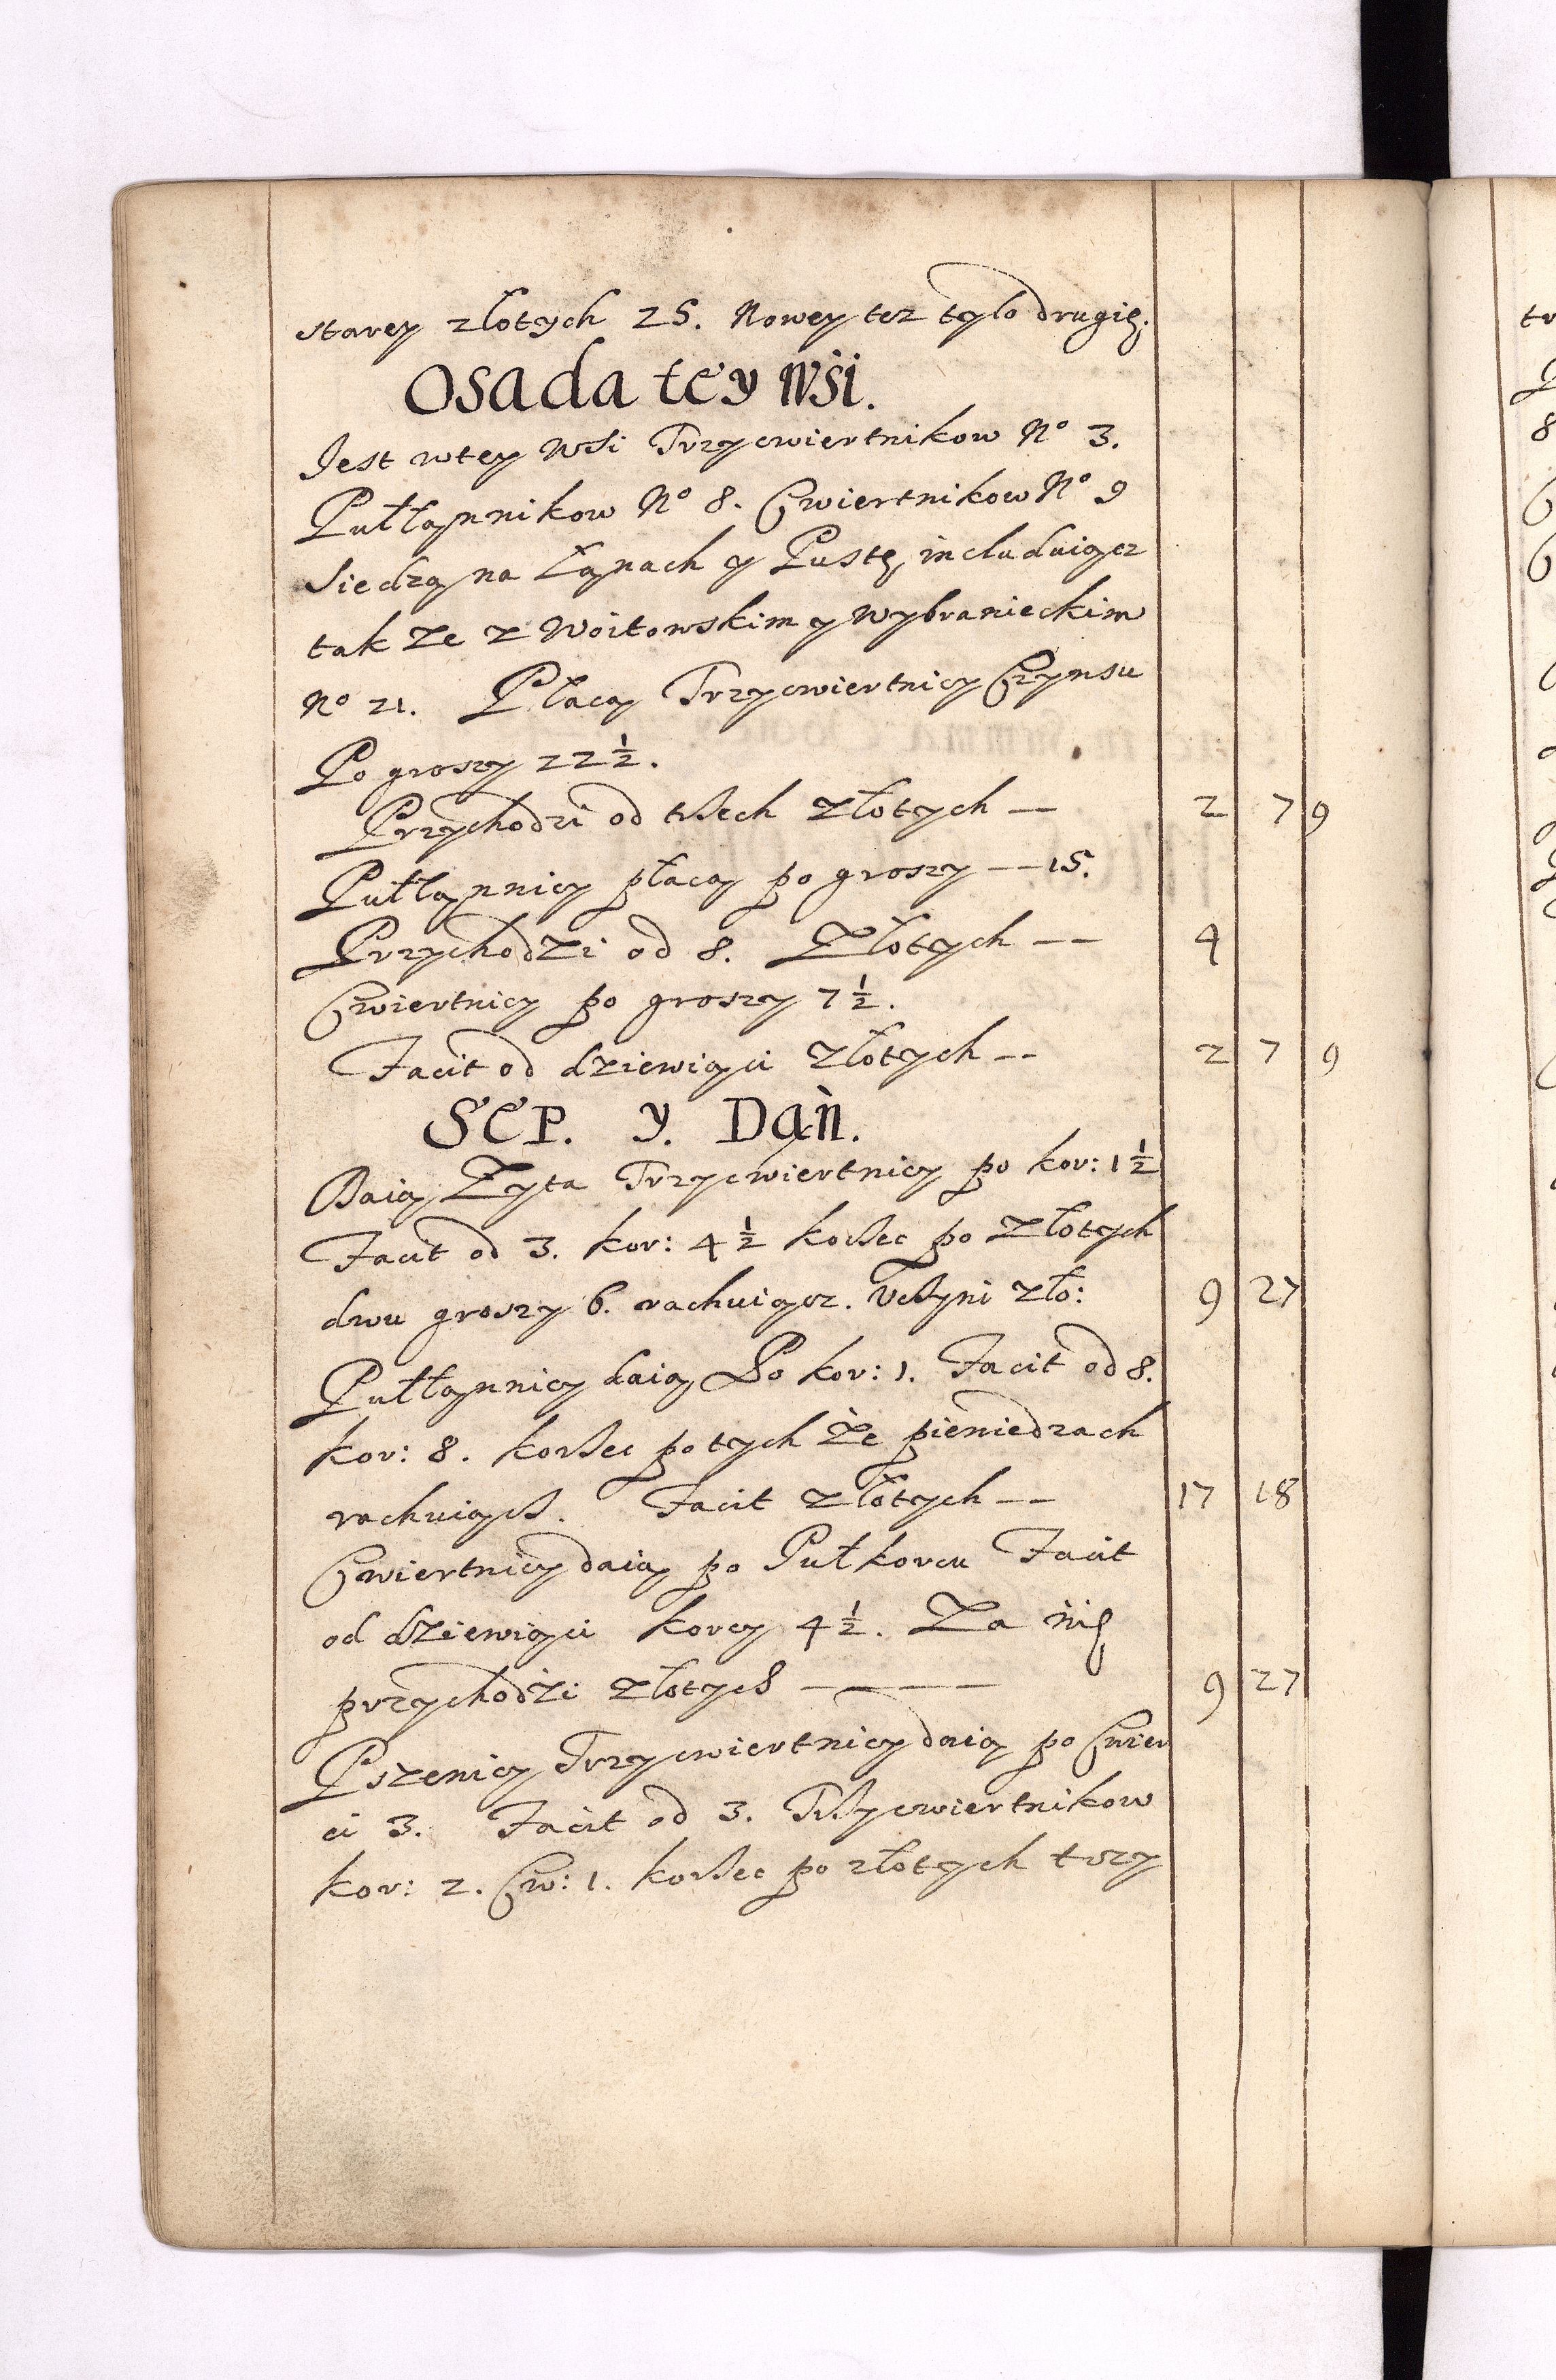 starey złotych 25. Nowey tez tylo drugię.
Osada tey wśi.
Jest wtey wsi Trzycwiertnikow No 3.
Pułłąnnikow No 8. Cwiertnikow No 9
Siedzą na Łąnach y Pustę, includuiącz
tak ze z Woitowskim y Wybranieckim
No 21. Płacą Trzycwiertnicy Czynsu
Po groszy 22 1/2.
Przychodzi od trzech złotych — 2 7 9
Pułłąnnicy płacą po groszy — 15.
Przychodzi od 8. Złotych — 4
Cwiertnicy po groszy 7 1/2.
Facit od dziewiąci złotych -- 2 7 9
SEP. y. Dań.
Daią Zyta Trzycwiertnicy po kor: 1 1/2
Facit od 3. kor: 4 1/2 korzec po złotych
dwu groszy 6. rachuiącz. Uczyni zło: 9 27
Pułłąnnicy daią Po kor: 1. Facit od 8.
kor: 8. korzec po tych że pieniedzach
rachuiącz. Facit złotych -- 17 18
Cwiertnicy daią po Puł korcu Facit
od dziewiąci korcy 4 1/2. Za nię
przychodzi złotych — 9 27
Pszenicy Trzycwiertnicy daią po Cwier
ci 3. Facit od 3. Trzycwiertnikow
kor: 2. Cw: 1. korzec po złotych trzy
tr
8